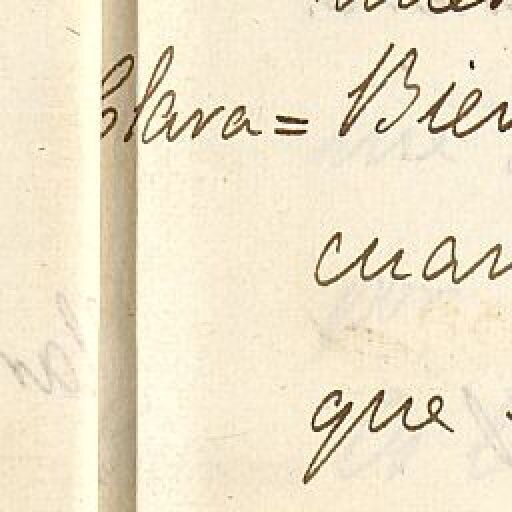 Clara = Bien
cuan
que